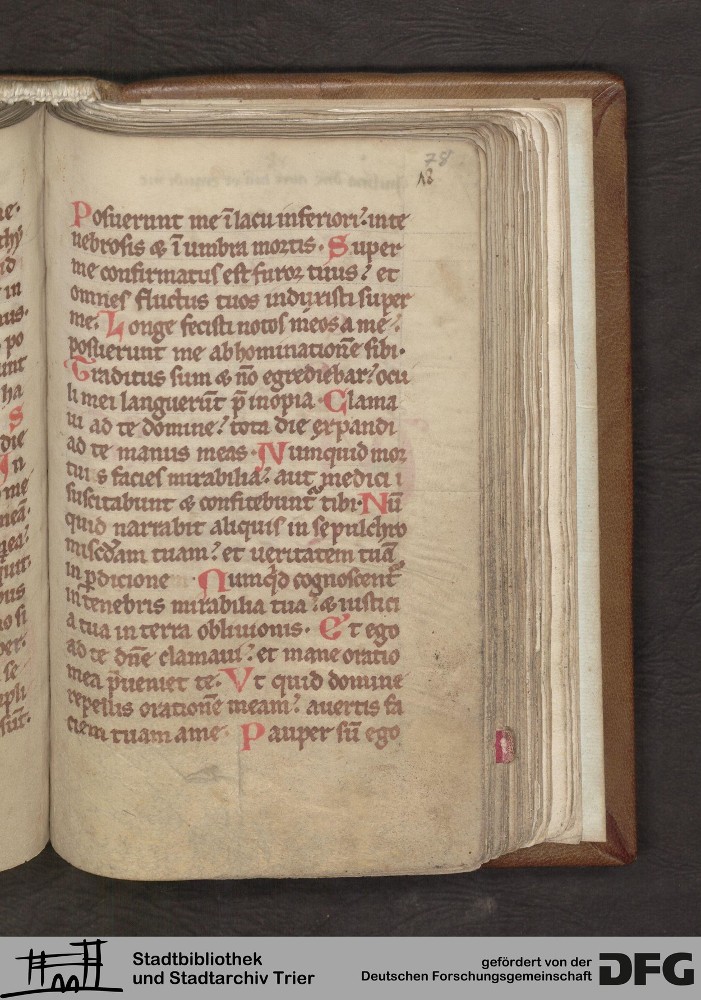 78
18
Posuerunt me ī lacu inferiori: in te
nebrosis & ī umbra mortis. Super
me confirmatus est furor tuus: et
omnes fluctus tuos induxisti super
me. Longe fecisti notos meos a me:
posuerunt me abhominationē sibi.
Traditus sum & nō egrediebar: ocu
li mei languerūt p̄ inopia. Clama
ui ad te domine: tota die expandi
ad te manus meas. Numquid mor
tuis facies mirabilia: aut medici
suscitabunt & confitebunt tibi. Nū
quid narrabit aliquis in sepulchro
miscdām tuam: et ueritatem tuā
in pdicione. Numqd cognoscent
in tenebris mirabilia tua: & iustici
a tua in terra obliuionis. Et ego
ad te dn̄e clamaui: et mane oratio
mea p̄ueniet te. Vt quid domine
repellis orationē meam: auertis fa
ciem tuam a me. Pauper sū ego
Stadtbibliothek
und Stadtarchiv Trier
gefördert von der
Deutschen Forschungsgemeinschaft
DFG